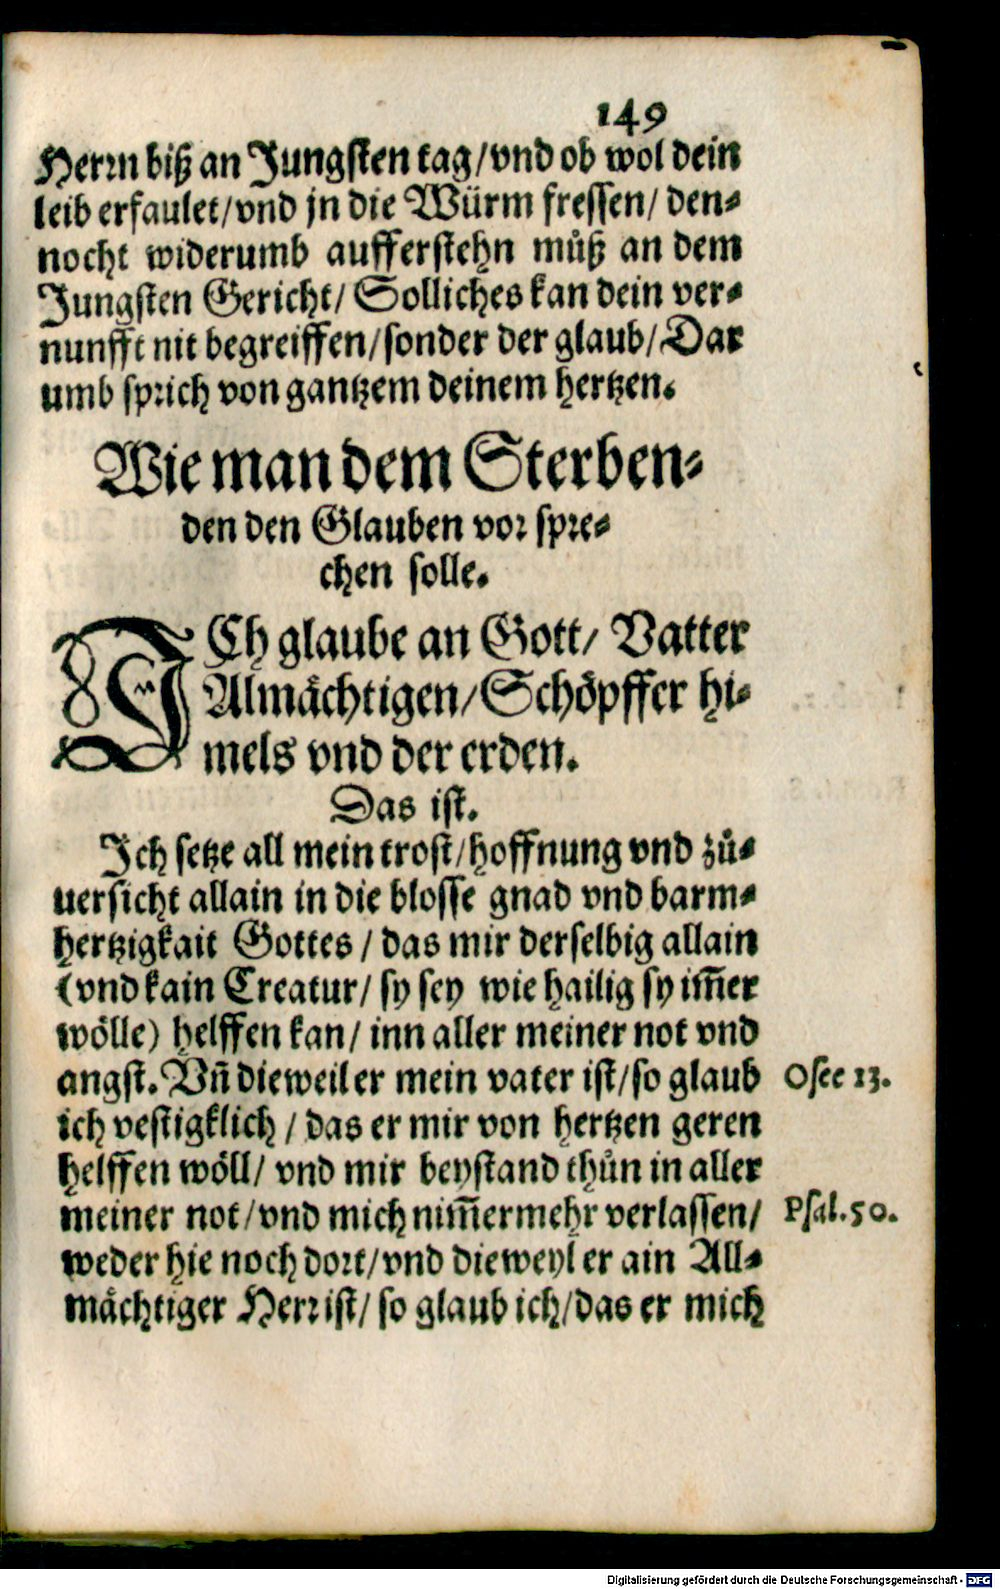 149
Herrn biß an Jungsten tag/vnd ob wol dein
leib erfaulet/vnd jn die Würm fressen/ den⸗
nocht widerumb aufferstehn můß an dem
Jungsten Gericht/ Solliches kan dein ver⸗
nunfft nit begreiffen/sonder der glaub/Dar
umb sprich von gantzem deinem hertzen.
Wie man dem Sterben⸗
den den Glauben vor spre⸗
chen solle.
ICh glaube an Gott/ Vatter
Almächtigen/Schöpffer hi⸗
mels vnd der erden.
Das ist.
Ich setze all mein trost/hoffnung vnd zů⸗
uersicht allain in die blosse gnad vnd barm⸗
hertzigkait Gottes / das mir derselbig allain
(vnd kain Creatur/ sy sey wie hailig sy im̄er
wölle) helffen kan/ inn aller meiner not vnd
angst. Vn̄ dieweil er mein vater ist/so glaub Osee 13.
ich vestigklich / das er mir von hertzen geren
helffen wöll/ vnd mir beystand thůn in aller
meiner not/vnd mich nim̄ermehr verlassen/ Psal.50.
weder hie noch dort/vnd dieweyl er ain All⸗
mächtiger Herr ist/ so glaub ich/das er mich
Digitalisierung gefördert durch die Deutsche Forschungsgemeinschaft - DFG